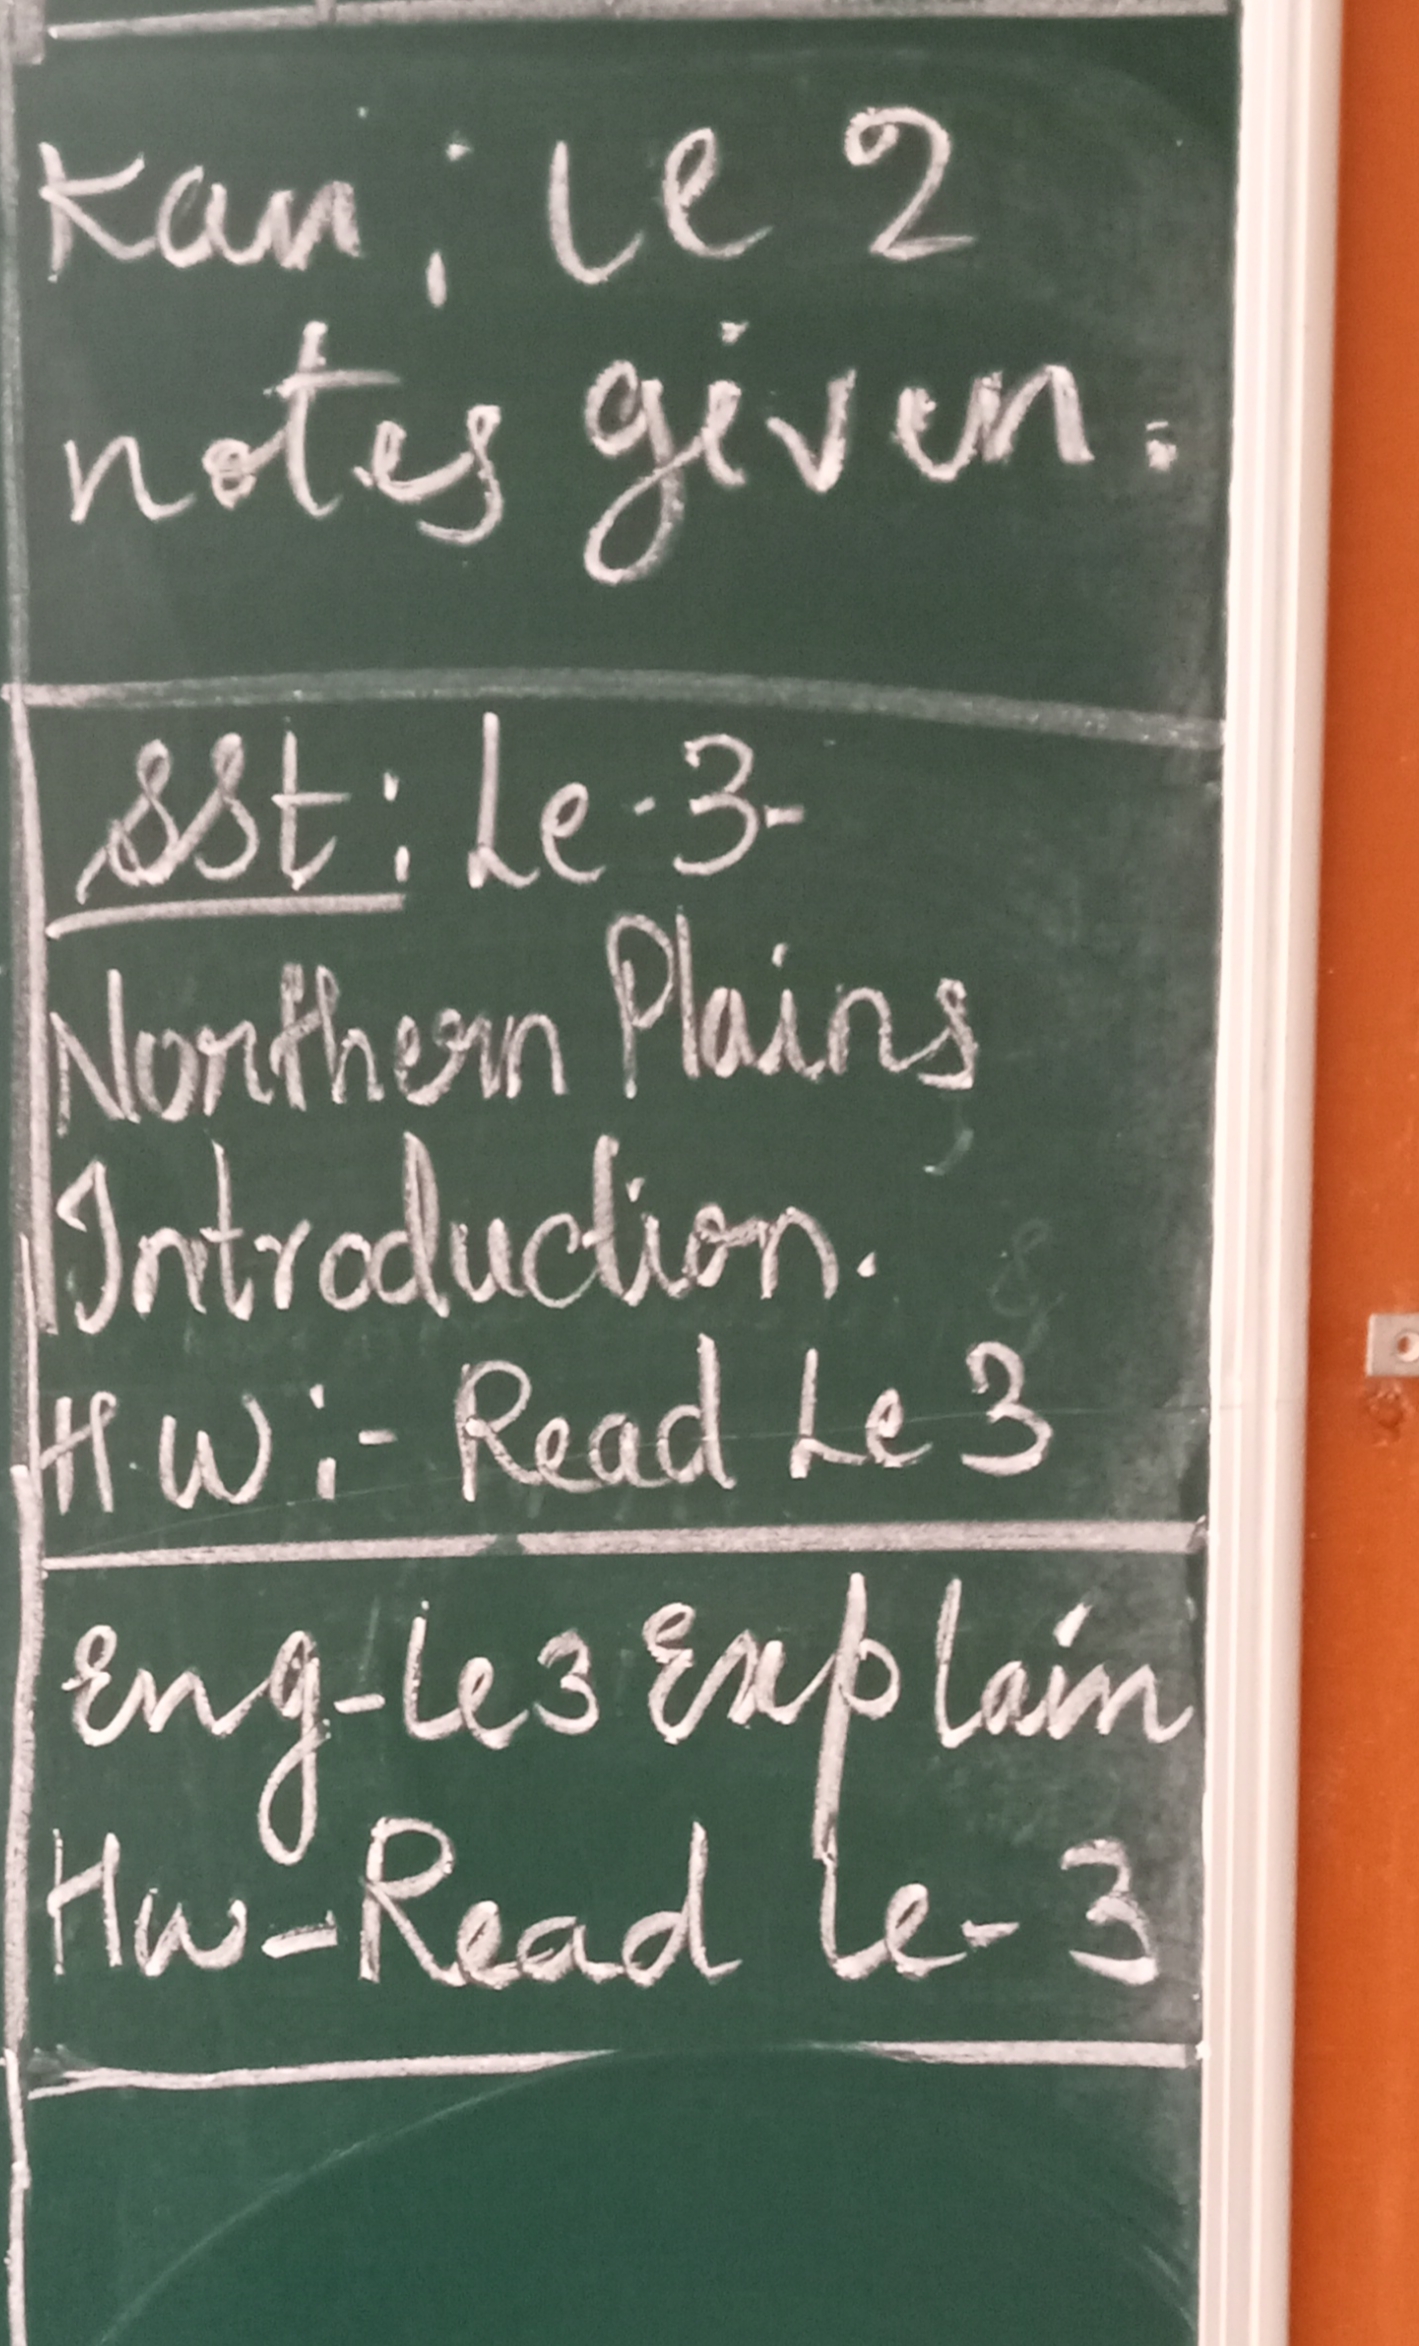 Kan : Le 2
notes given.
SSt : Le - 3 -
Northern Plains
Introduction.
HW :- Read Le 3
Eng - Le 3 Explain
Hw - Read Le - 3